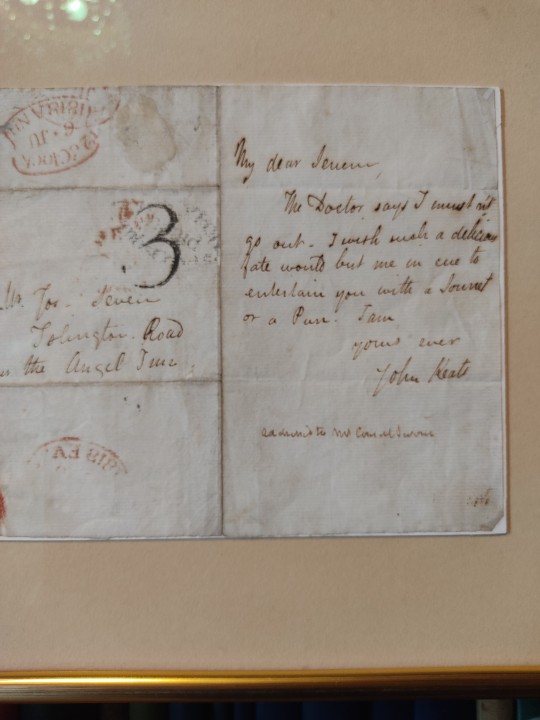 12 o'CLOCK
JU
3
Mr. Jos. Severn
Islington Road
the Angel Inn
My dear Severn,
The Doctor says I mustn't
go out. I wish such a delicious
fate would put me in cue to
entertain you with a Sonnet
or a Pun. I am
yours ever
John Keats